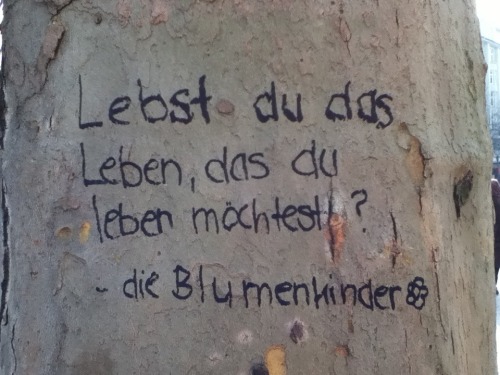 Lebst du das
Leben, das du
leben möchtest?
- die Blumenkinder